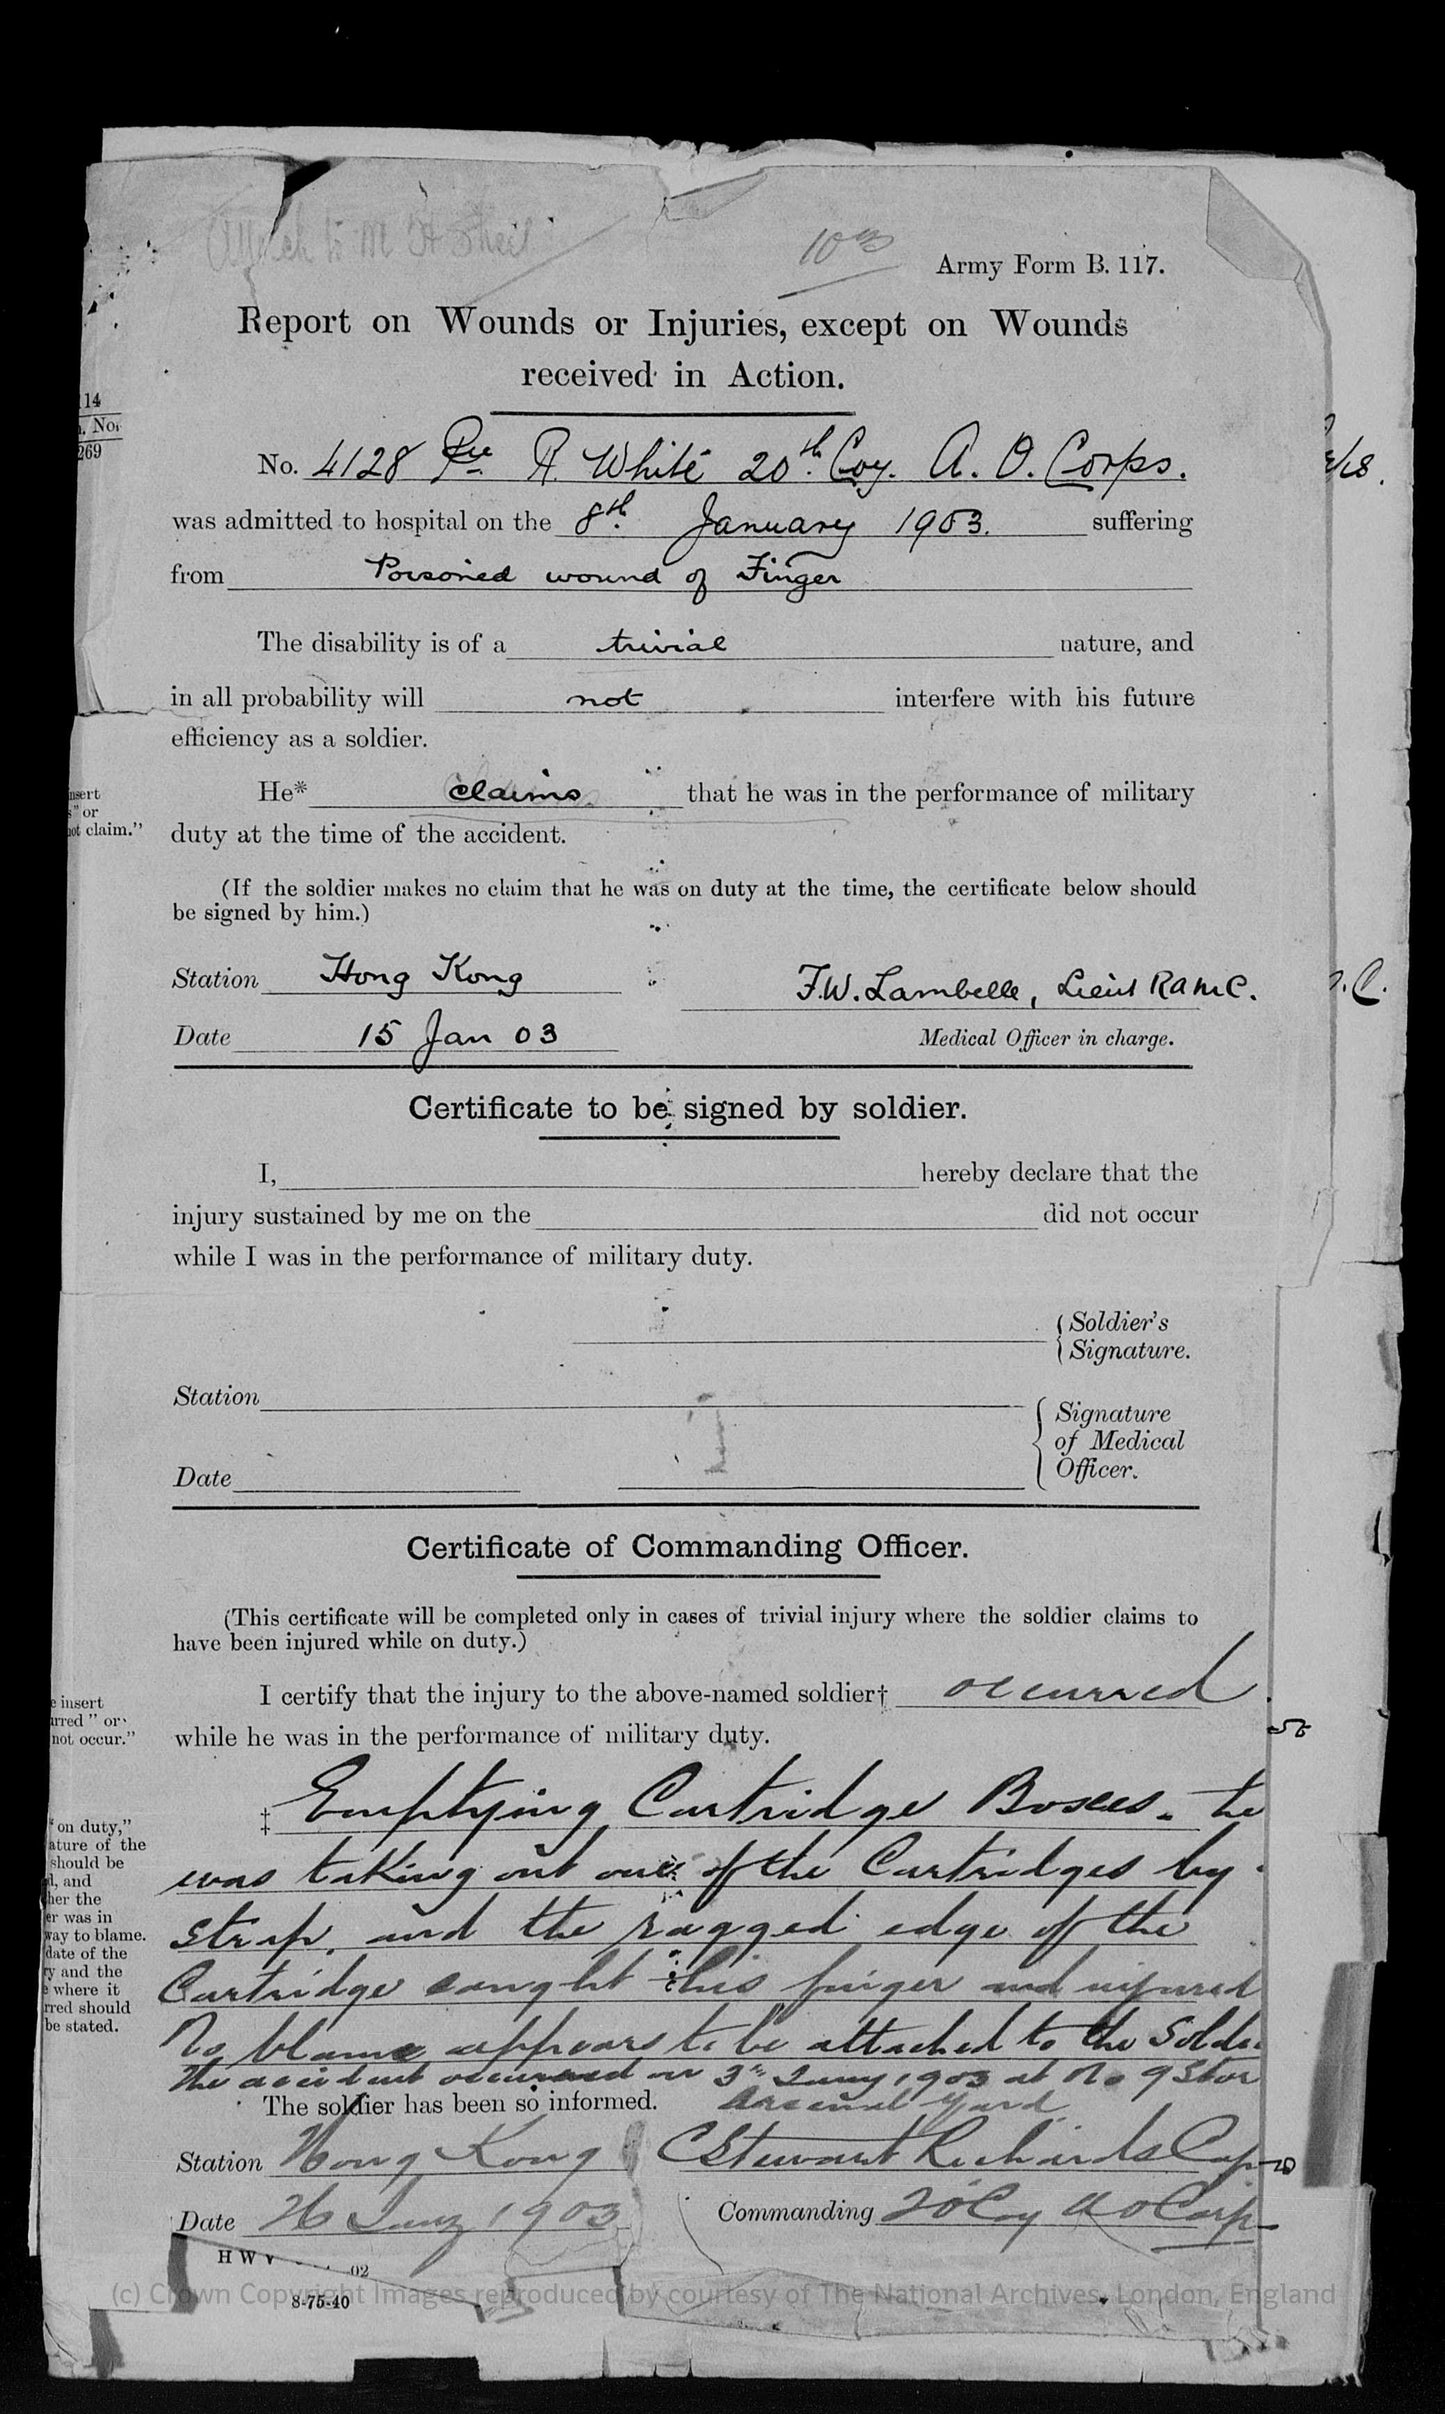 Attach to M H Sheet
103
Army Form B. 117.
Report on Wounds or Injuries, except on Wounds
received in Action.
14
. No.
269
No. 4128 Pte R. White 20th Coy. A. O. Corps.
was admitted to hospital on the 8th January 1903. suffering
from Poisoned wound of Finger
The disability is of a trivial nature, and
in all probability will not interfere with his future
efficiency as a soldier.
nsert
s" or
not claim."
He* claims that he was in the performance of military
duty at the time of the accident.
(If the soldier makes no claim that he was on duty at the time, the certificate below should
be signed by him.)
Station Hong Kong F.W. Lambelle, Lieut RAMC.
Date 15 Jan 03 Medical Officer in charge.
Certificate to be signed by soldier.
I, hereby declare that the
injury sustained by me on the did not occur
while I was in the performance of military duty.
Soldier's
Signature.
Station
Signature
of Medical
Officer.
Date
Certificate of Commanding Officer.
(This certificate will be completed only in cases of trivial injury where the soldier claims to
have been injured while on duty.)
e insert
urred" or
not occur."
I certify that the injury to the above-named soldier† occurred
while he was in the performance of military duty.
"on duty,"
ature of the
should be
d, and
her the
er was in
way to blame.
date of the
ry and the
e where it
rred should
be stated.
‡ Emptying Cartridge Boxes - he
was taking out one of the Cartridges by
strap, and the ragged edge of the
Cartridge caught his finger and injured
No blame appears to be attached to the Soldier
The accident occurred on 3rd Jany 1903 at No 9 Store
Arsenal Yard
The soldier has been so informed.
Station Hong Kong C Stewart Richards Cap
Date 26 Jany 1903 Commanding 20 Coy A O Corps
H W V 02
8-75-40
(c) Crown Copyright Images reproduced by courtesy of The National Archives, London, England